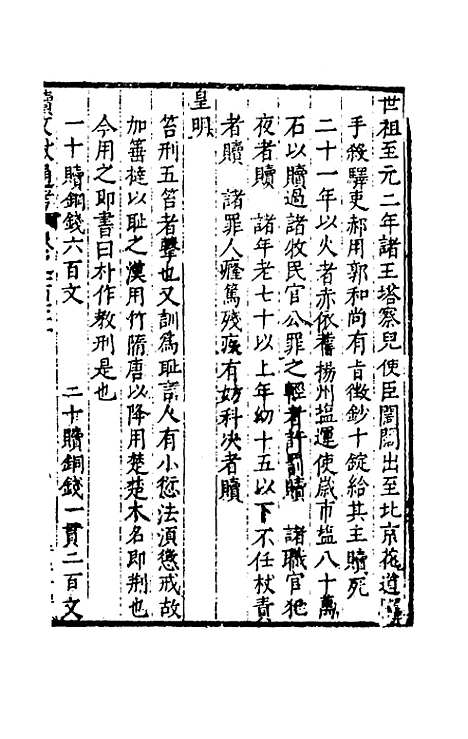 世祖至元二年諸王塔察兒使臣闊闊出至北京花道驛
手殺驛吏郝用郭和尚有旨徵鈔十錠給其主贖死
二十一年以火者赤依舊揚州盐運使歲市盐八十萬
石以贖過諸牧民官公罪之輕者許罰贖　諸職官犯
夜者贖　諸年老七十以上年幼十五以下不任杖責
者贖　諸罪人癃篤殘疾有妨科决者贖
皇明
笞刑五笞者擊也又訓爲耻言人有小愆法湏懲戒故
加箠撻以耻之漢用竹隋唐以降用楚楚木名即荆也
今用之即書曰朴作教刑是也
一十贖銅錢六百文　二十贖銅錢一貫二百文
續文獻通考